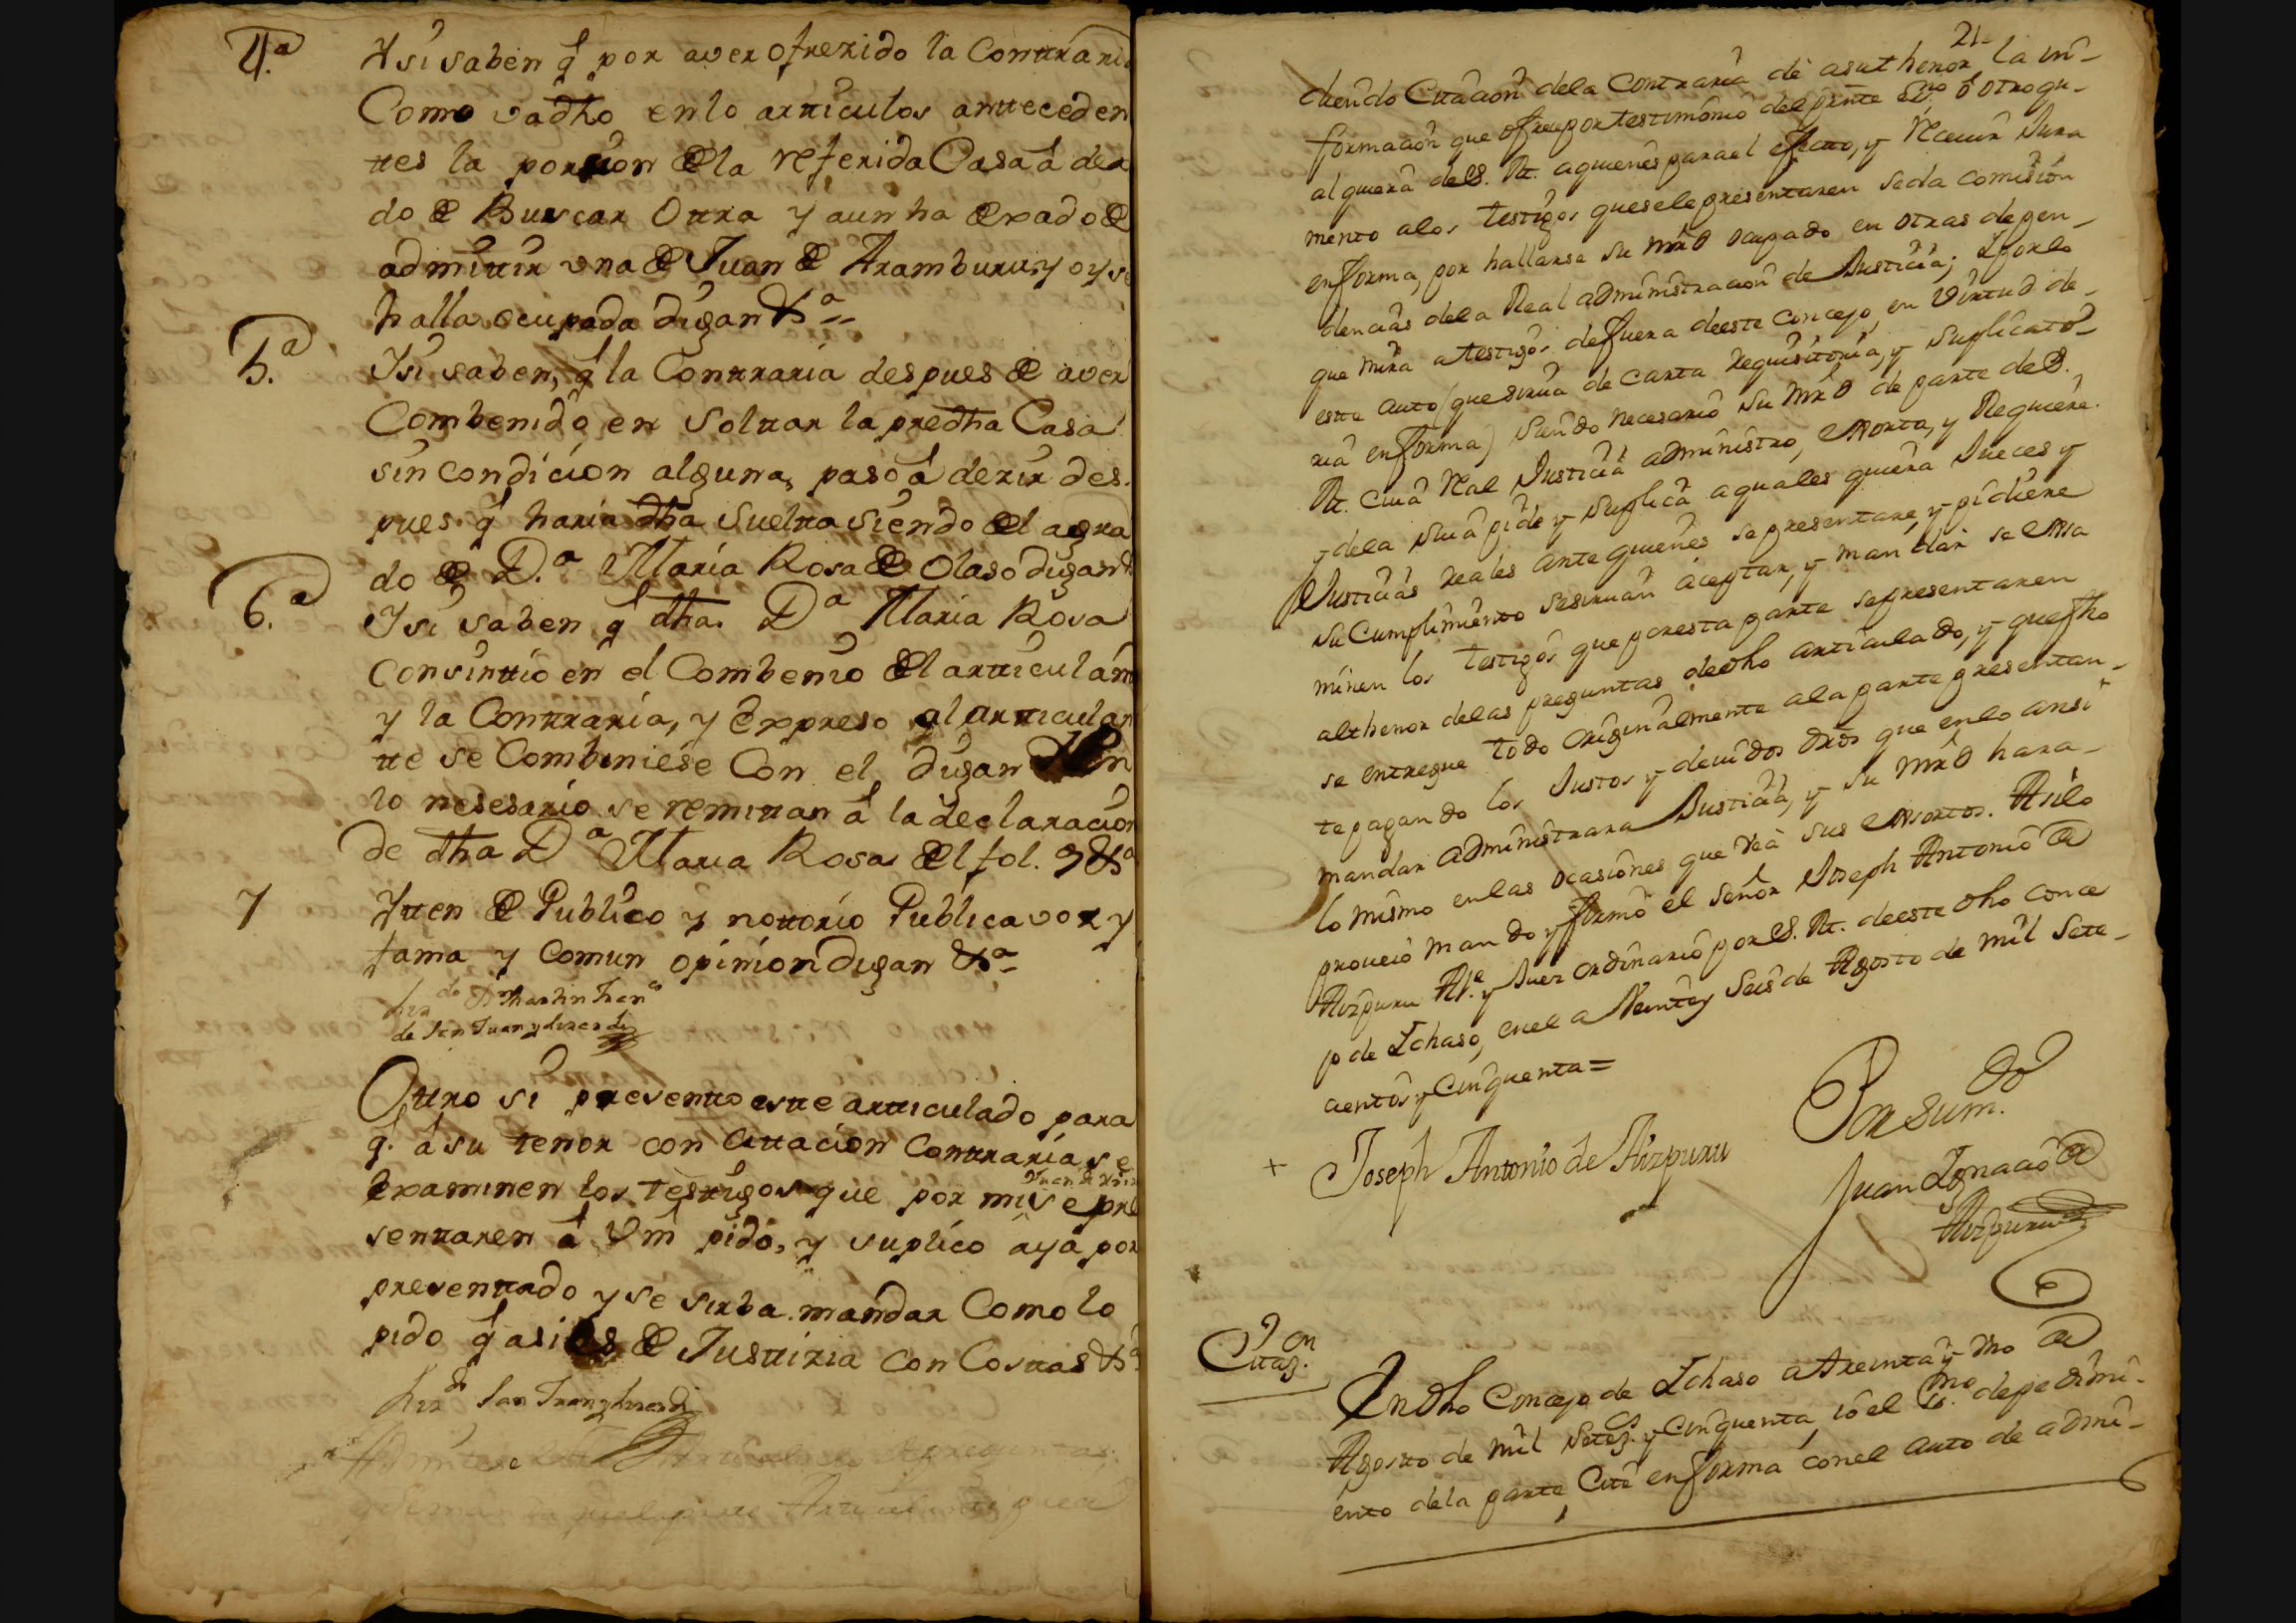 4.a
Y si saben q̃ por aver ofrezido la Contraria
Como va dho en lo artticulos antteceden
ttes la porsion de la referida Casa á dexa
do de Buscar Ottra y aun ha dexado de
admittir una de Juan de Aramburu, y oy se
halla ocupada digan &a
5.a
Y si saben, q̃ la Conttraria despues de aver
Combenido en solttar la predha Casa
sin condicion alguna, paso á dezir des-
pues q̃ haria dha Suelta siendo del agra
do de D.a Maria Rosa de Olaso digan &
6.a
Y si saben q̃ dha. Da Maria Rosa
consinttio en el Combenio del artticulan
y la Conttraria, y Expreso al artticulan
tte se Combiniese Con el, digan
lo nesesario se remittan á la declaracion
de dha Da Maria Rosa del fol. 9 &a
7
Ytten de Publico y nottorio Publica vox y
fama y comun opinion digan &a
Lizdo Dn Martin Franco
de San Juan y
Ottro si presentto este artticulado para
q̃. á su tenor con Cittacion Contraria se
Examinen los testtigos que por mi se pre
senttaren á Vm pido, y suplico aya por
presenttado y se sirba mandar Como lo
pido q̃ asi es de Justtizia con Costtas &a
Lizdo San Juan y
21
diendo Citacion dela Contraria de a su thenor la in-
formacion que ofrece por testimonio del press.te Ess.no ó otro qu-
alquiera de S. M. a quienes para el efecto, y Recivir Jura
mento alos testigos quesele presentaren seda comision
en forma, por hallarse su mrd ocupado en otras depen-
dencias dela Real administracion de Justicia; Y por lo
que mira a testigos de fuera deeste concejo, en virtud de-
este auto (que sirua de carta requisitoria, y suplicato-
ria en forma) siendo necesario su mrd de parte de S.
M. cuia Real Justicia administro, exorta, y Requiere.
y dela sua pide y suplica a quales quiera Jueces y
Justicias reales ante quienes se presentare, y pidiere
su Cumplimiento sesiruan aceptar, y mandar se exsa
minen los testigos que por esta parte se presentaren
al thenor delas preguntas dedho articulado, y que fho
se entregue todo originalmente ala parte presentan-
te pagando los Justos y deuidos dros que en lo ansi
mandar administrara Justicia, y su mrd hara-
lo mismo en las ocasiones que vea sus exsortos. Asilo
proueio mando y firmó el señor Joseph Antonio de
Aizpuru Al.e y Juez ordinario por S. M. deeste dho conce
jo de Ichaso, en el a Veinte y Seis de Agosto de mil Sete-
cientos y Cinquenta=
Joseph Antonio de Aizpuru
Por su m.do
Juan Ignacio de
Aizpuru
Citaz.on
En dho Concejo de Ichaso a treinta y uno de
Agosto de mil setez.os y Cinquenta, io el es.no de pedimi-
ento dela parte, Cité en forma con el auto de admi-